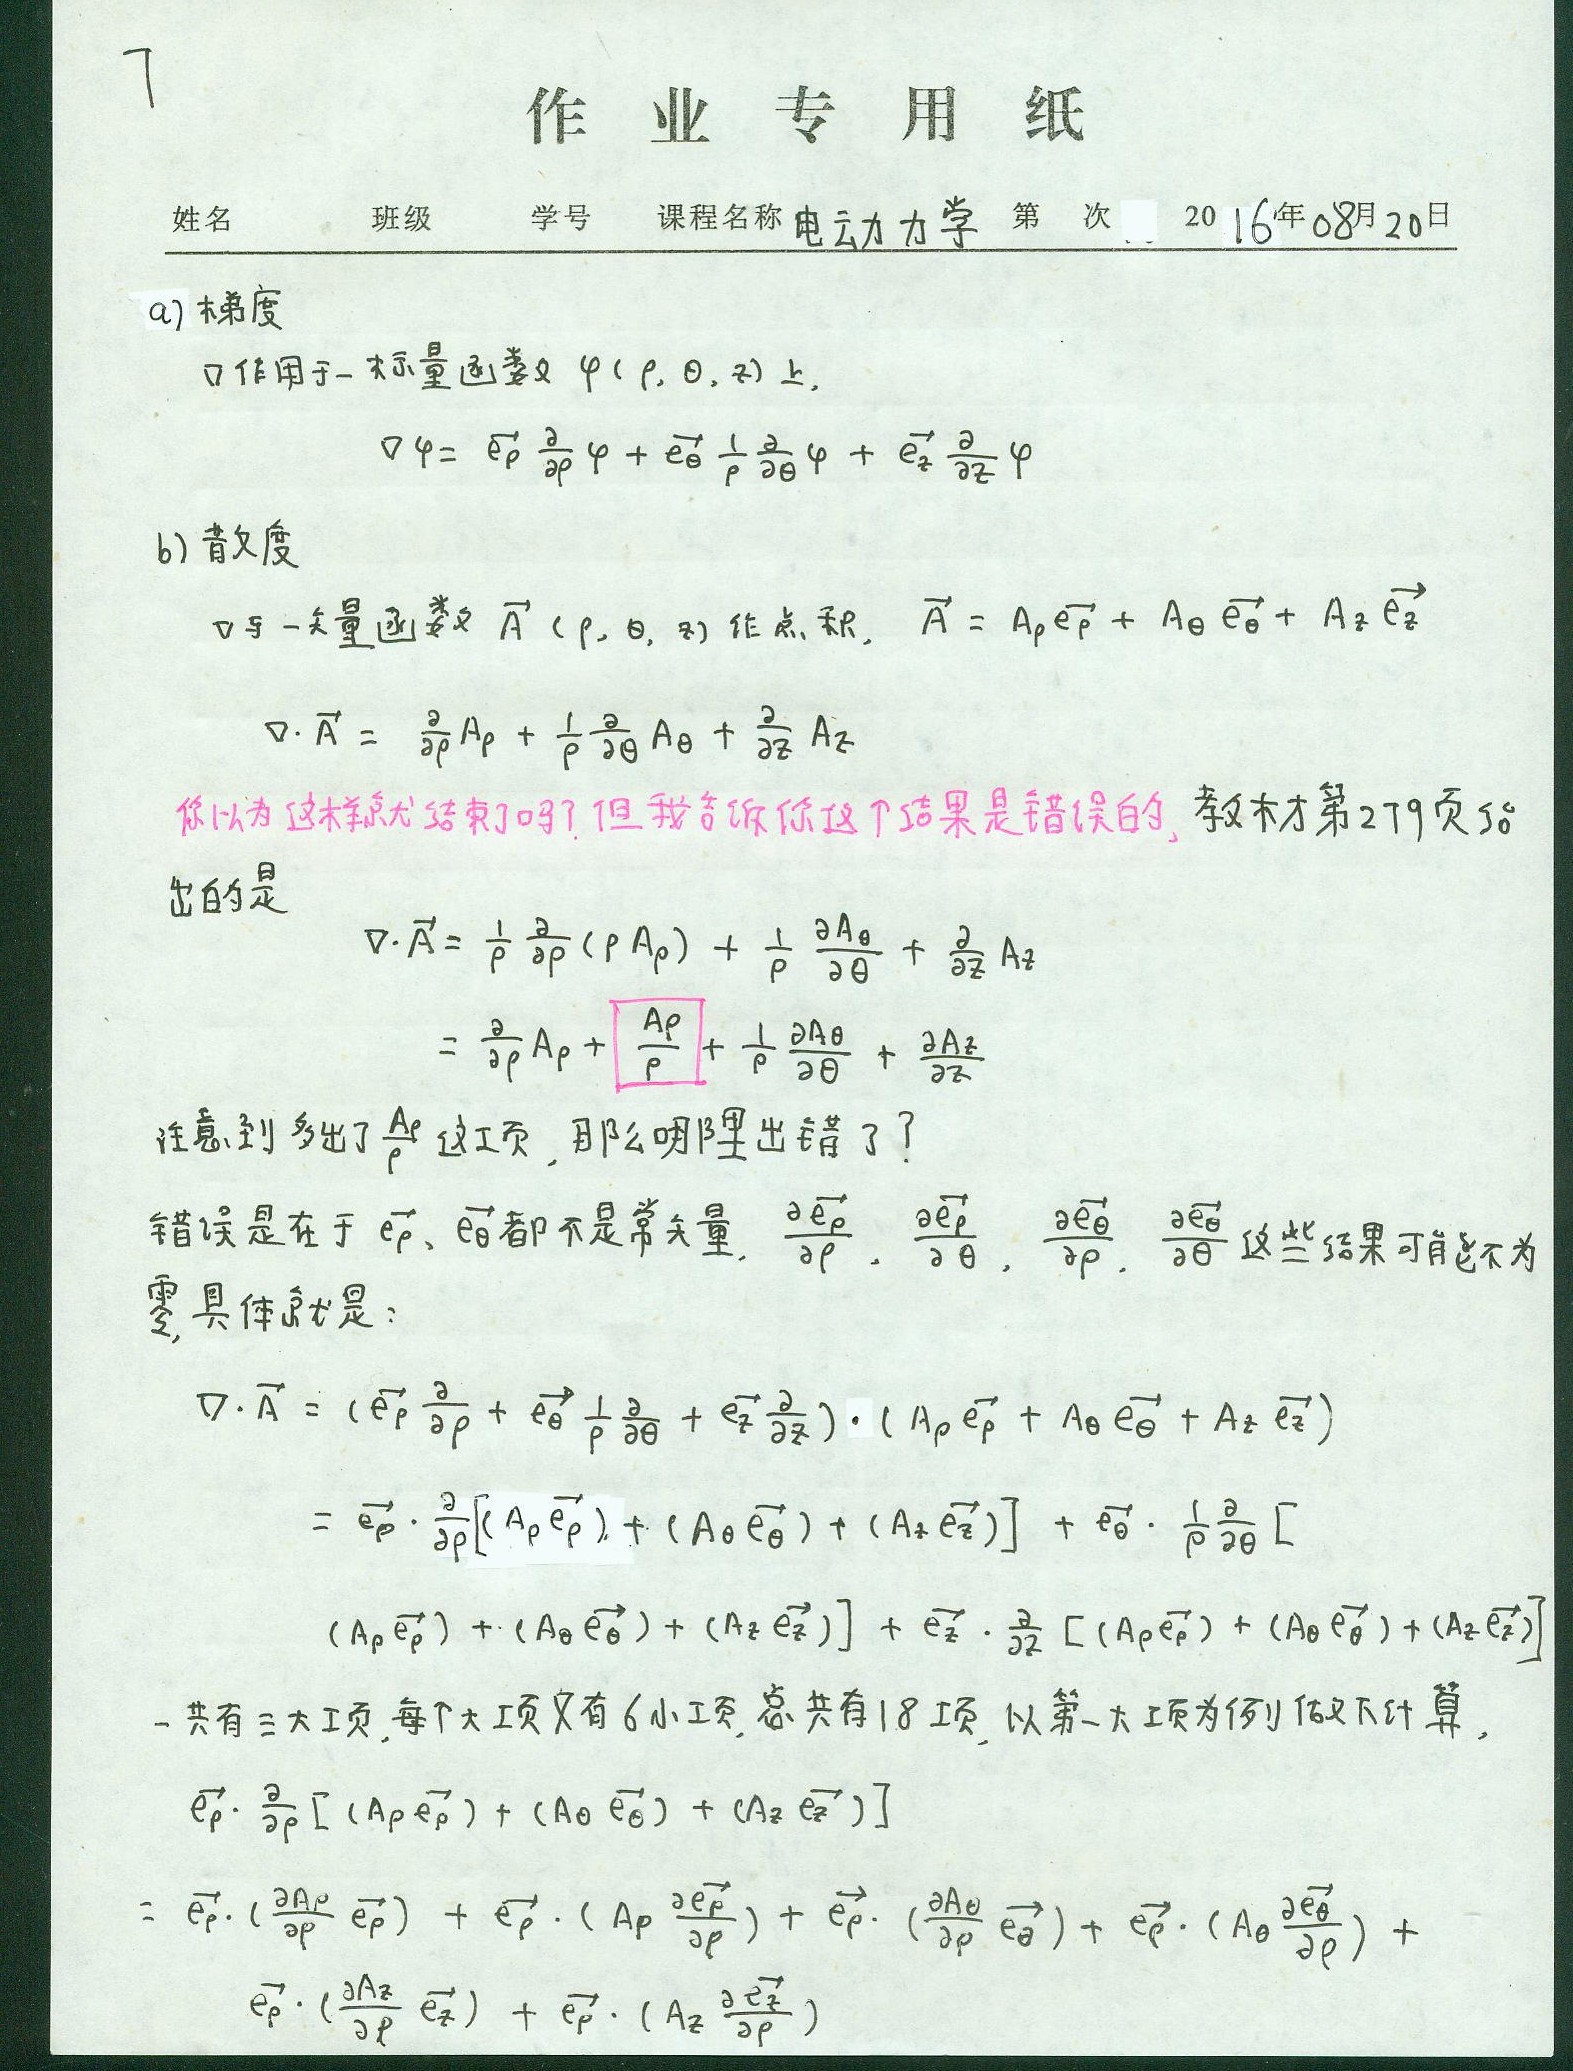 7
作业专用纸
姓名 班级 学号 课程名称 电动力学 第 次 2016年08月20日
a) 梯度
∇作用于一标量函数 φ(ρ, θ, z) 上,
∇φ = e⃗ρ ∂/∂ρ φ + e⃗θ 1/ρ ∂/∂θ φ + e⃗z ∂/∂z φ
b) 散度
∇与一矢量函数 A⃗ (ρ, θ, z) 作点积, A⃗ = Aρ e⃗ρ + Aθ e⃗θ + Az e⃗z
∇·A⃗ = ∂/∂ρ Aρ + 1/ρ ∂/∂θ Aθ + ∂/∂z Az
你以为这样就结束了吗? 但我告诉你这个结果是错误的, 教材第279页给
出的是
∇·A⃗ = 1/ρ ∂/∂ρ (ρ Aρ) + 1/ρ ∂Aθ/∂θ + ∂/∂z Az
= ∂/∂ρ Aρ + Aρ/ρ + 1/ρ ∂Aθ/∂θ + ∂Az/∂z
注意到多出了 Aρ/ρ 这项, 那么哪里出错了?
错误是在于 e⃗ρ、e⃗θ都不是常矢量, ∂e⃗ρ/∂ρ, ∂e⃗ρ/∂θ, ∂e⃗θ/∂ρ, ∂e⃗θ/∂θ 这些结果可能不为
零, 具体就是:
∇·A⃗ = (e⃗ρ ∂/∂ρ + e⃗θ 1/ρ ∂/∂θ + e⃗z ∂/∂z) · (Aρ e⃗ρ + Aθ e⃗θ + Az e⃗z)
= e⃗ρ · ∂/∂ρ [(Aρ e⃗ρ) + (Aθ e⃗θ) + (Az e⃗z)] + e⃗θ · 1/ρ ∂/∂θ [
(Aρ e⃗ρ) + (Aθ e⃗θ) + (Az e⃗z)] + e⃗z · ∂/∂z [(Aρ e⃗ρ) + (Aθ e⃗θ) + (Az e⃗z)]
一共有三大项, 每个大项又有6小项, 总共有18项, 以第一大项为例做下计算,
e⃗ρ · ∂/∂ρ [(Aρ e⃗ρ) + (Aθ e⃗θ) + (Az e⃗z)]
= e⃗ρ · (∂Aρ/∂ρ e⃗ρ) + e⃗ρ · (Aρ ∂e⃗ρ/∂ρ) + e⃗ρ · (∂Aθ/∂ρ e⃗θ) + e⃗ρ · (Aθ ∂e⃗θ/∂ρ) +
e⃗ρ · (∂Az/∂ρ e⃗z) + e⃗ρ · (Az ∂e⃗z/∂ρ)